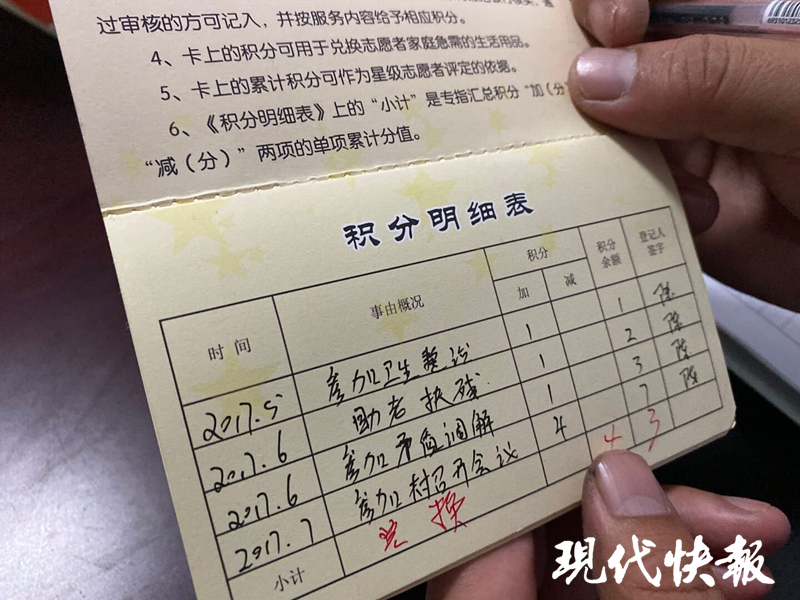 过审核的方可记入，并按服务内容给予相应积分。
4、卡上的积分可用于兑换志愿者家庭急需的生活用品。
5、卡上的累计积分可作为星级志愿者评定的依据。
6、《积分明细表》上的“小计”是专指汇总积分“加（分）
“减（分）”两项的单项累计分值。
积分明细表
时间 事由概况 积分 加 减 积分余额 登记人签字
2017.5 参加卫生整治 1 1 陈
2017.6 助老扶残 1 2 陈
2017.6 参加矛盾调解 1 3 陈
2017.7 参加村召开会议 4 7 陈
小计 兑换 4 3
现代快报